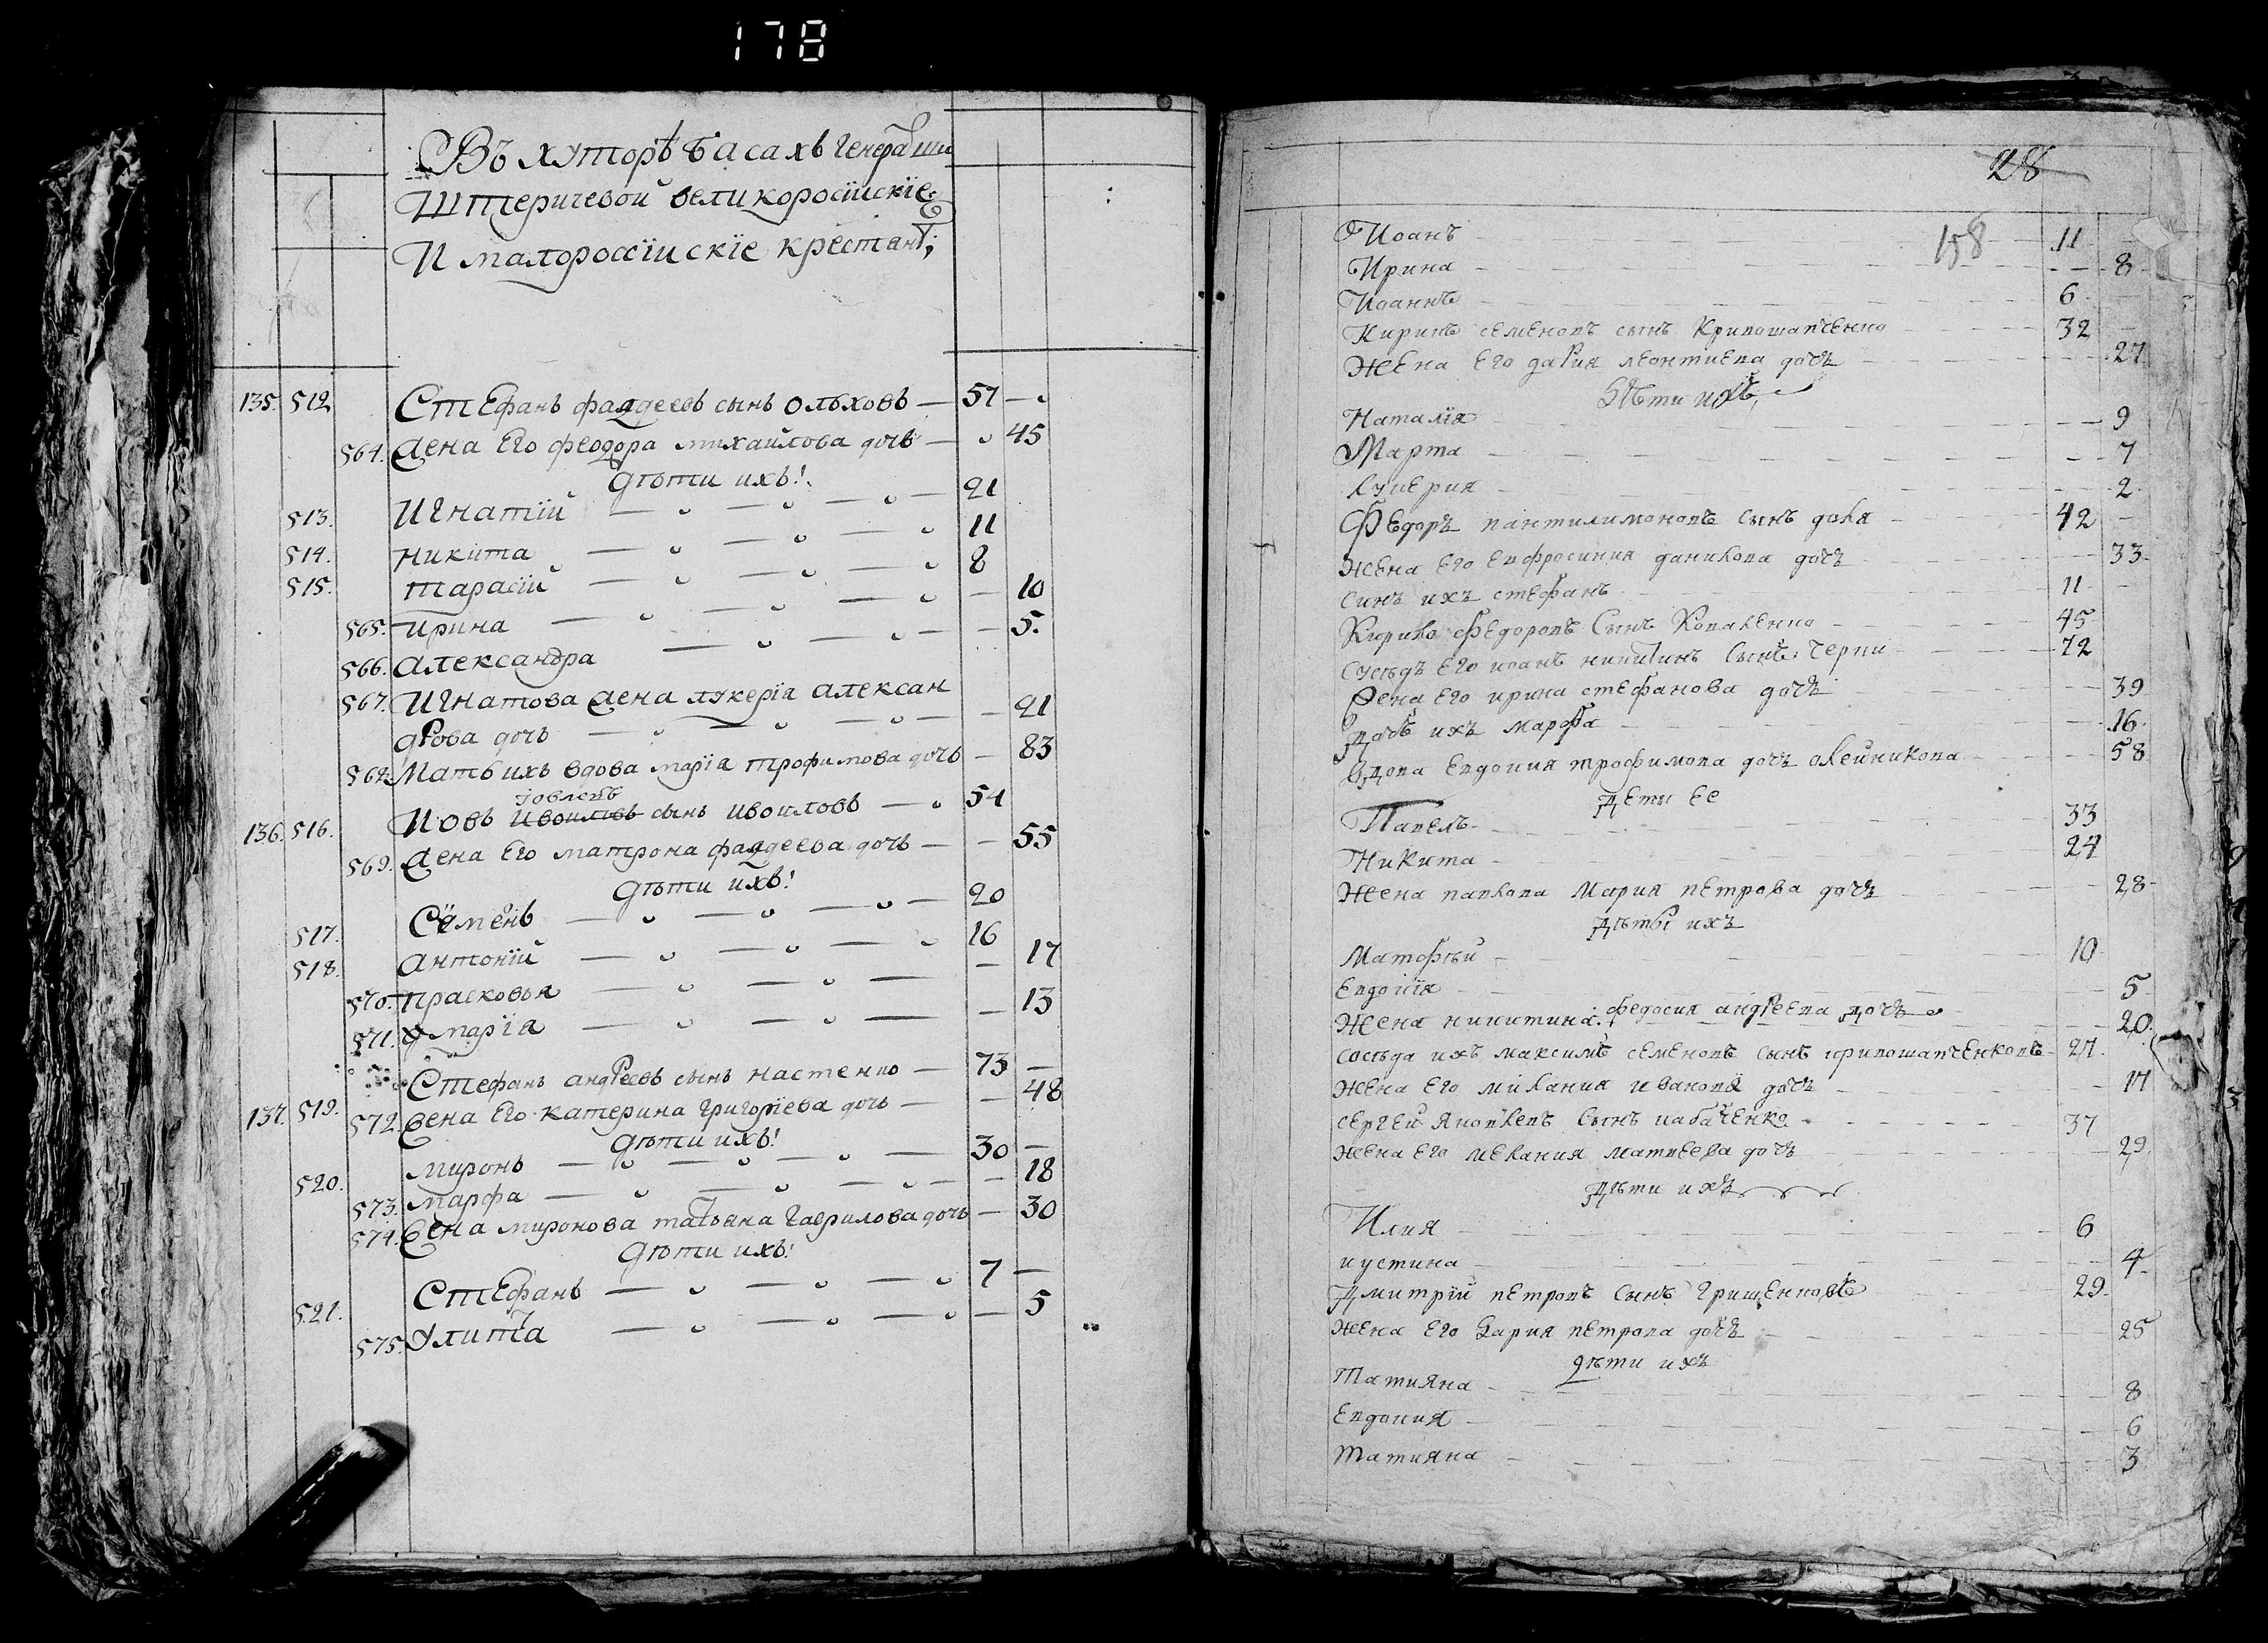 178
Въ хуторѣ Басахъ генералши
Штеричевой великоросїискїе
И малоросїискїе крестяня;
135. 512. Стефанъ фаддеевъ сынъ Ольховъ — 57 —
564. Жена Его феодора михаилова дочь — 45
Дѣти ихъ!
513. Игнатїй — 21
514. Никита — 11
515. Тарасїй — 8
565. Ирина — 10
566. Александра — 5.
567. Игнатова жена лукерїа алексан
дрова дочь — 21
568. Мать ихъ вдова марїа трофимова дочь — 83
іовлевъ
136. 516. Иовъ Ивоиловъ сынъ Ивоиловъ — 54
569. Жена Его матрона фаддеева дочь — 55
Дѣти ихъ!
517. Семенъ — 20
518. Антонїй — 16
570. Прасковья — 17
571. марїа — 13
137. 519. Стефанъ андреевъ сынъ настенко — 73 —
572. Жена Его катерина григорїева дочь — 48
Дѣти ихъ!
520. миронъ — 30 —
573. марфа — 18
574. Жена миронова татьяна гаврилова дочь — 30
Дѣти ихъ!
521. Стефанъ — 7 —
575. Улита — 5
28
158
Иоанъ — 11
Ирина — 8
Иоаннъ — 6
Кирилъ семеновъ сынъ Кривошапченко — 32
жена его дария леонтиева дочъ — 27
Дѣти ихъ
Наталїя — 9
Марта — 7
лукерия — 2
Федоръ пантилимоновъ сынъ доля — 42
жена его евфросиния данилова дочъ — 33
синъ ихъ стефанъ — 11
Кирило федоровъ сынъ Коваленко — 45
сусѣдъ его иоанъ никитинъ сынъ черни — 72
жена его ирина стефанова дочъ — 39
Дочъ ихъ марфа — 16
Вдова евдокия трофимова дочъ олейникова — 58
Дети ее
Павелъ — 33
Никита — 24
жена павлова Мария петрова дочъ — 28
Дѣты ихъ
Матфѣй — 10
Евдокїя — 5
жена никитина: федосия андреева дочъ — 20
сосѣда ихъ максимъ семеновъ сынъ кривошапченковъ — 27
жена его милания иванова дочъ — 17
сергей яковлевъ сынъ кабаченко — 37
жена его мелания матвеева дочъ — 29
Дѣти ихъ
Илия — 6
иустина — 4
Дмитрїй петровъ сынъ Грищенковъ — 29
жена его Дария петрова дочъ — 25
Дѣти ихъ
Татияна — 8
Евдокия — 6
Татияна — 3